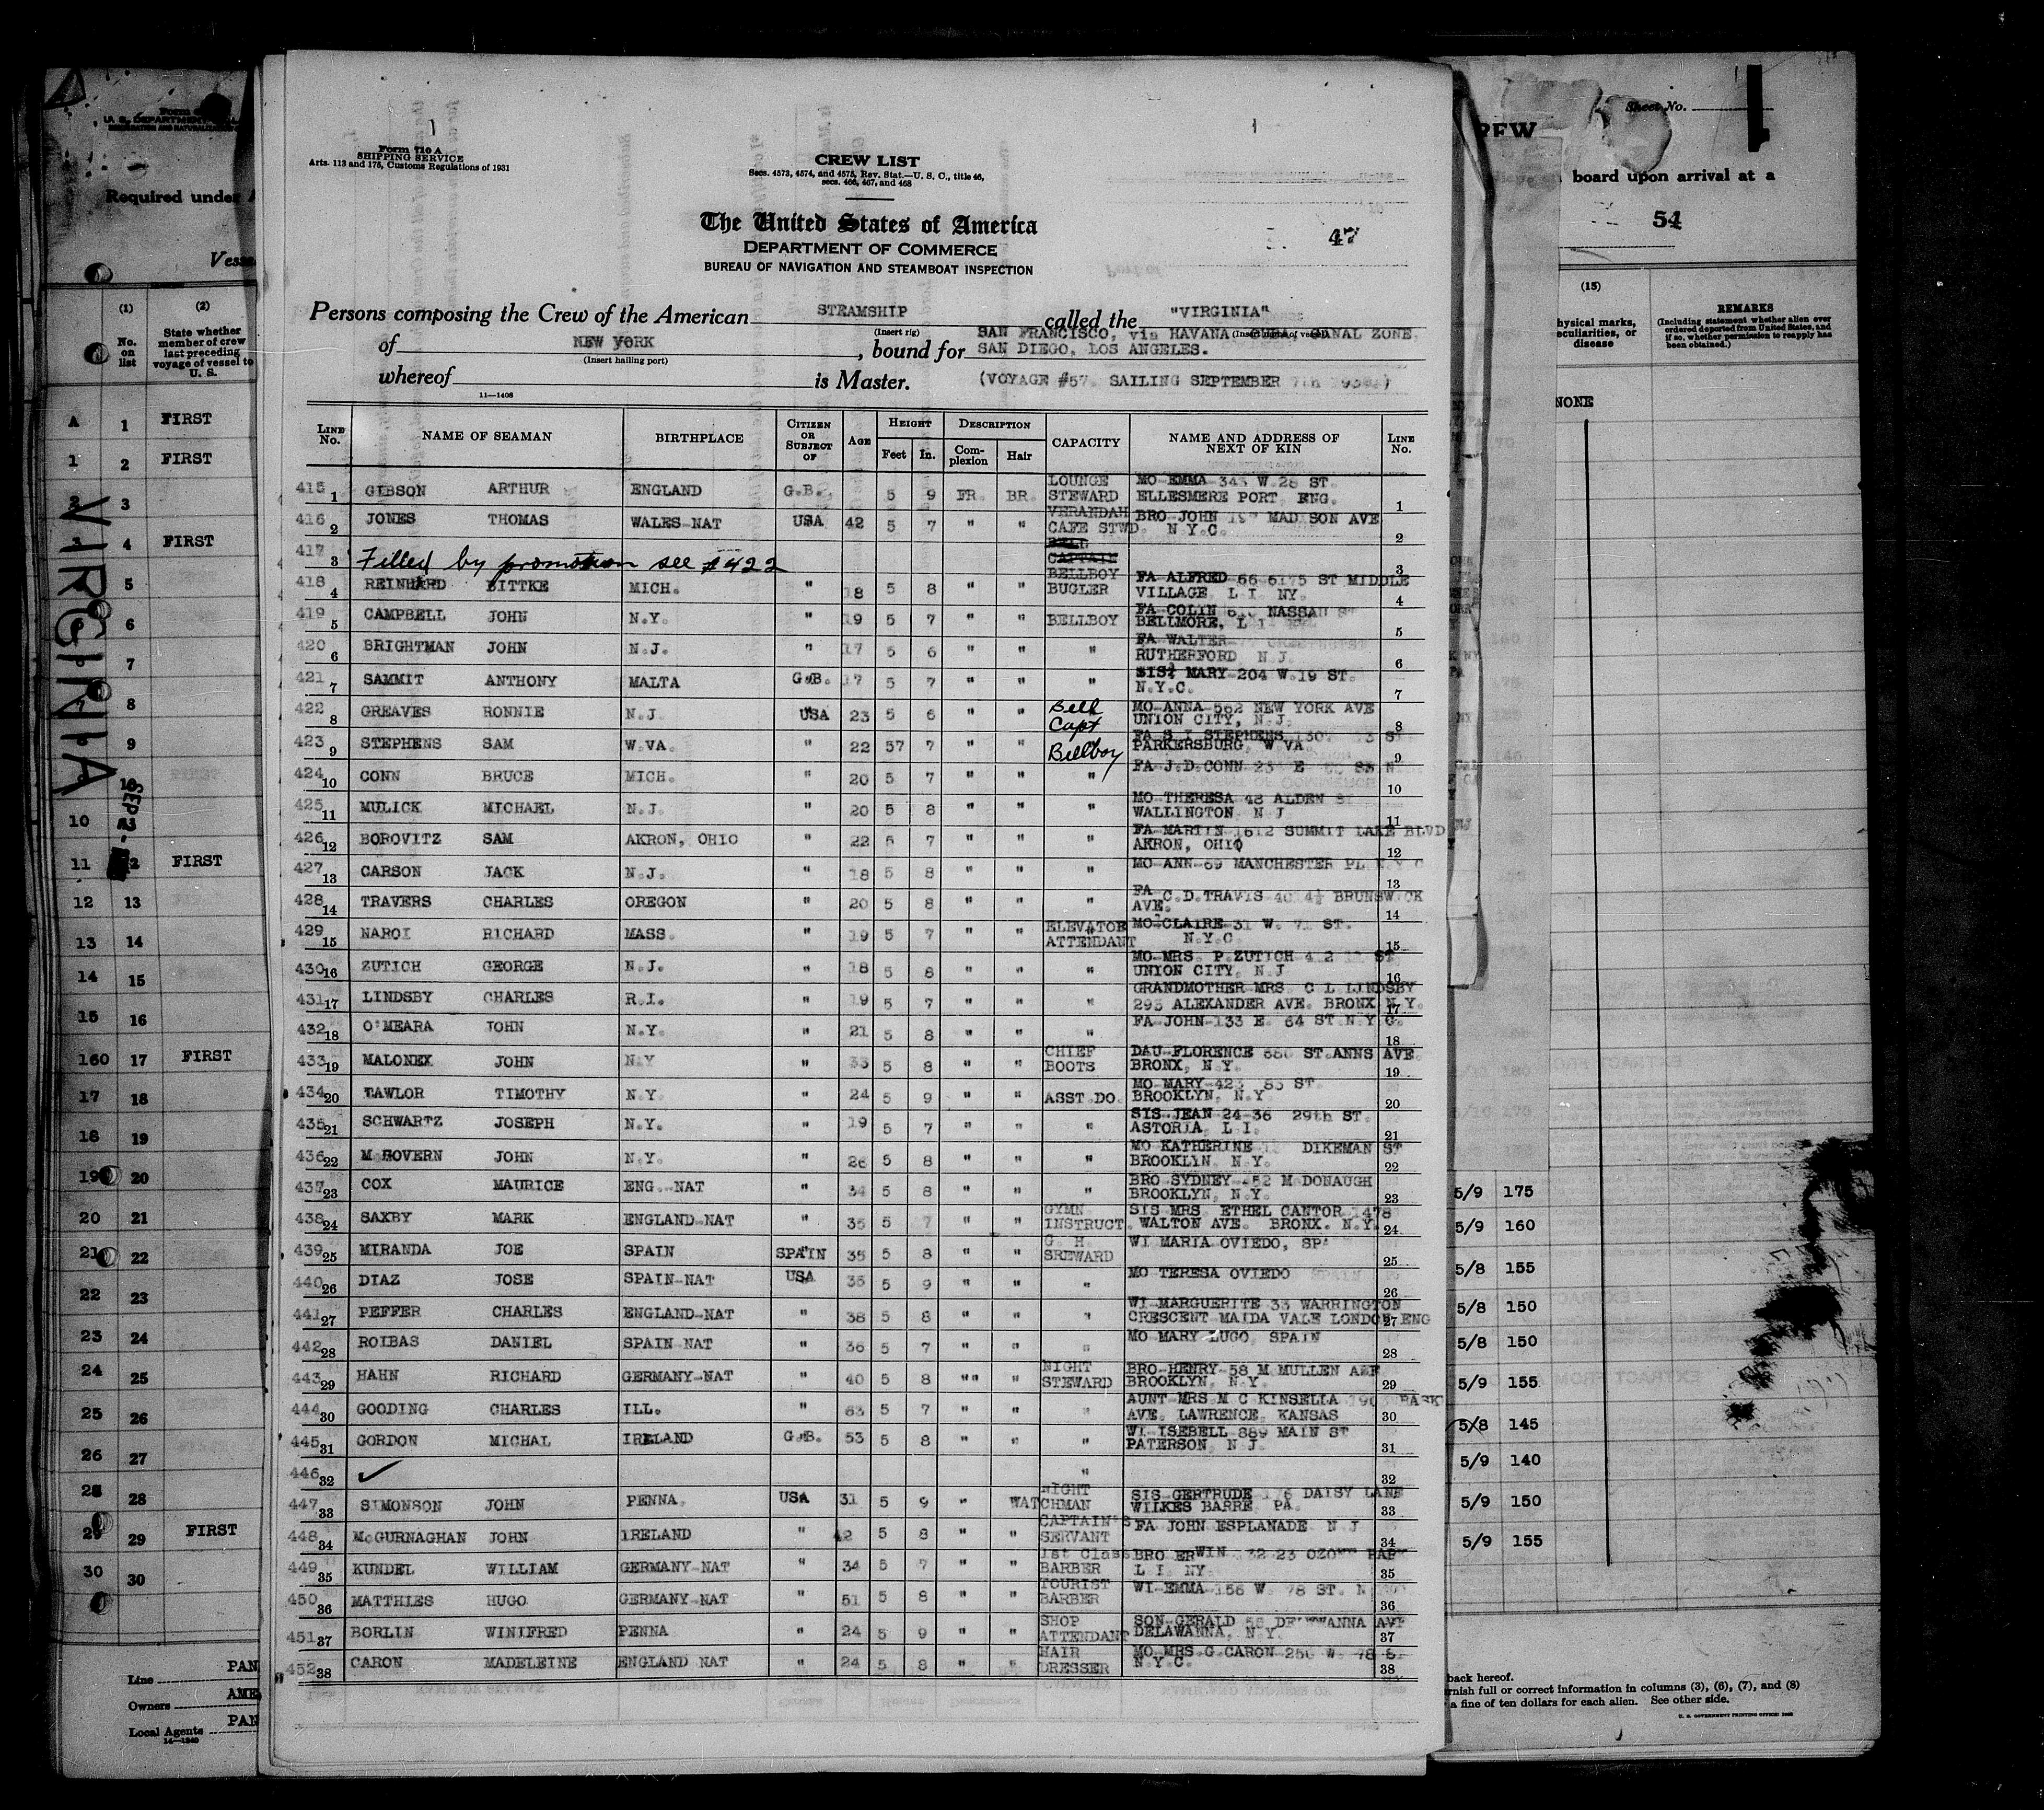 Form 710 A
SHIPPING SERVICE
Arts. 113 and 175, Customs Regulations of 1931
CREW LIST
Secs. 4573, 4574, and 4575, Rev. Stat.—U. S. C., title 46,
secs. 466, 467, and 468
The United States of America
DEPARTMENT OF COMMERCE
BUREAU OF NAVIGATION AND STEAMBOAT INSPECTION
47
Persons composing the Crew of the American STEAMSHIP called the "VIRGINIA"
(Insert rig)
of NEW YORK, bound for SAN FRANCISCO, via HAVANA CANAL ZONE,
(Insert hailing port) SAN DIEGO, LOS ANGELES.
whereof is Master. (VOYAGE #57. SAILING SEPTEMBER
11—1408
LINE No. NAME OF SEAMAN BIRTHPLACE CITIZEN OR SUBJECT OF AGE HEIGHT Feet In. DESCRIPTION Complexion Hair CAPACITY NAME AND ADDRESS OF NEXT OF KIN LINE No.
415 1 GIBSON ARTHUR ENGLAND G.B. 5 9 FR. BR. LOUNGE STEWARD MO EMMA 343 W.28 ST. ELLESMERE PORT ENG. 1
416 2 JONES THOMAS WALES-NAT USA 42 5 7 " " VERANDAH CAFE STWD. BRO JOHN MADISON AVE N.Y.C. 2
417 3 Filled by promotion see #422 BELL CAPTAIN 3
418 4 REINHARD BITTKE MICH. " 18 5 8 " " BELLBOY BUGLER FA ALFRED 66 6175 ST MIDDLE VILLAGE L I NY. 4
419 5 CAMPBELL JOHN N.Y. " 19 5 7 " " BELLBOY FA COLIN NASSAU ST BELLMORE, L I 5
420 6 BRIGHTMAN JOHN N.J. " 17 5 6 " " " FA WALTER RUTHERFORD N J. 6
421 7 SAMMIT ANTHONY MALTA G.B. 17 5 7 " " " SIS: MARY-204 W.19 ST. N.Y.C. 7
422 8 GREAVES RONNIE N.J USA 23 5 6 " " Bell Capt MO-ANNA-562 NEW YORK AVE UNION CITY, N.J. 8
423 9 STEPHENS SAM W.VA. " 22 57 7 " " Bellboy FA S I STEPHENS PARKERSBURG, W VA 9
424 10 CONN BRUCE MICH. " 20 5 7 " " " FA J.D.CONN 10
425 11 MULICK MICHAEL N.J. " 20 5 8 " " " MO THERESA 48 ALDEN WALLINGTON N J 11
426 12 BOROVITZ SAM AKRON, OHIO " 22 5 7 " " " FA MARTIN 1612 SUMMIT LAKE BLVD AKRON, OHIO 12
427 13 CARSON JACK N.J. " 18 5 8 " " " MO ANN 69 MANCHESTER PL N Y C 13
428 14 TRAVERS CHARLES OREGON " 20 5 8 " " " FA C.D.TRAVIS BRUNSWICK AVE. 14
429 15 NARCI RICHARD MASS. " 19 5 7 " " ELEVATOR ATTENDANT MO CLAIRE-31 W. 71 ST. N.Y.C. 15
430 16 ZUTICH GEORGE N.J. " 18 5 8 " " " MO MRS. P.ZUTICH UNION CITY, N J 16
431 17 LINDSBY CHARLES R.I. " 19 5 7 " " " GRANDMOTHER MRS C L LINDSBY 293 ALEXANDER AVE. BRONX N.Y. 17
432 18 O'MEARA JOHN N.Y. " 21 5 8 " " " FA JOHN-133 E. 64 ST N Y C. 18
433 19 MALONEX JOHN N Y " 33 5 8 " " CHIEF BOOTS DAU-FLORENCE 680 ST.ANNS AVE. BRONX, N.Y. 19
434 20 TAWLOR TIMOTHY N.Y. " 24 5 9 " " ASST.DO. MO MARY-423 83 ST. BROOKLYN, N.Y 20
435 21 SCHWARTZ JOSEPH N.Y. " 19 5 7 " " " SIS JEAN 24-36 29th ST. ASTORIA, L I. 21
436 22 M GOVERN JOHN N.Y. " 26 5 8 " " " MO KATHERINE DIKEMAN ST BROOKLYN N.Y. 22
437 23 COX MAURICE ENG.-NAT " 34 5 8 " " " BRO SYDNEY 452 M DONAUGH BROOKLYN, N.Y. 23
438 24 SAXBY MARK ENGLAND-NAT " 35 5 7 " " GYMN INSTRUCT. SIS MRS ETHEL CANTOR 1478 WALTON AVE. BRONX. N.Y. 24
439 25 MIRANDA JOE SPAIN SPAIN 35 5 8 " " G. H. SREWARD WI MARIA OVIEDO, 25
440 26 DIAZ JOSE SPAIN-NAT USA 35 5 9 " " " MO TERESA OVIEDO SPAIN 26
441 27 PEFFER CHARLES ENGLAND-NAT " 38 5 8 " " " WI MARGUERITE 33 WARRINGTON CRESCENT MAIDA VALE LONDON ENG 27
442 28 ROIBAS DANIEL SPAIN NAT " 36 5 7 " " " MO MARY LUGO, SPAIN 28
443 29 HAHN RICHARD GERMANY-NAT " 40 5 8 "" " NIGHT STEWARD BRO-HENRY-58 M MULLEN BROOKLYN, N.Y. 29
444 30 GOODING CHARLES ILL. " 63 5 7 " " " AUNT MRS M C KINSELLA PARK AVE. LAWRENCE, KANSAS 30
445 31 GORDON MICHAL IRELAND G.B. 53 5 8 " " " WI ISEBELL 889 MAIN ST PATERSON, N J. 31
446 32 ✓ " 32
447 33 SIMONSON JOHN PENNA. USA 31 5 9 " NIGHT WATCHMAN SIS GERTRUDE 176 DAISY LANE WILKES BARRE PA. 33
448 34 McGURNAGHAN JOHN IRELAND " 42 5 8 " " CAPTAIN'S SERVANT FA JOHN ESPLANADE N J 34
449 35 KUNDEL WILLIAM GERMANY-NAT " 34 5 7 " " 1st Class BARBER BRO ERWIN 132-23 L I NY. 35
450 36 MATTHIES HUGO GERMANY-NAT " 51 5 8 " " TOURIST BARBER WI-EMMA 156 W. 78 ST. 36
451 37 BORLIN WINIFRED PENNA " 24 5 9 " " SHOP ATTENDANT SON GERALD DELAWANNA, N.Y. 37
452 38 CARON MADELEINE ENGLAND NAT " 24 5 8 " " HAIR DRESSER MO MRS.G.CARON 250 W. 78 N.Y.C. 38
Required under
(1) (2)
No. on list
State whether member of crew last preceding voyage of vessel to U. S.
A 1 FIRST
1 2 FIRST
2 3
3 4 FIRST
5
6
7
7 8
9
10
11 FIRST
12 13
13 14
14 15
15 16
160 17 FIRST
17 18
18 19
19 20
20 21
21 22
22 23
23 24
24 25
25 26
26 27
28 28
29 29 FIRST
30 30
VIRGINIA
SEP
Line PAN
Owners AME
Local Agents PAN
14—1240
Sheet No.
REW
board upon arrival at a
54
(15)
hysical marks, eculiarities, or disease
REMARKS
(Including statement whether alien ever ordered deported from United States, and if so, whether permission to reapply has been obtained.)
NONE
5/9 175
5/9 160
5/8 155
5/8 150
5/8 150
5/9 155
5/8 145
5/9 140
5/9 150
5/9 155
back hereof.
rnish full or correct information in columns (3), (6), (7), and (8)
a fine of ten dollars for each alien. See other side.
U. S. GOVERNMENT PRINTING OFFICE